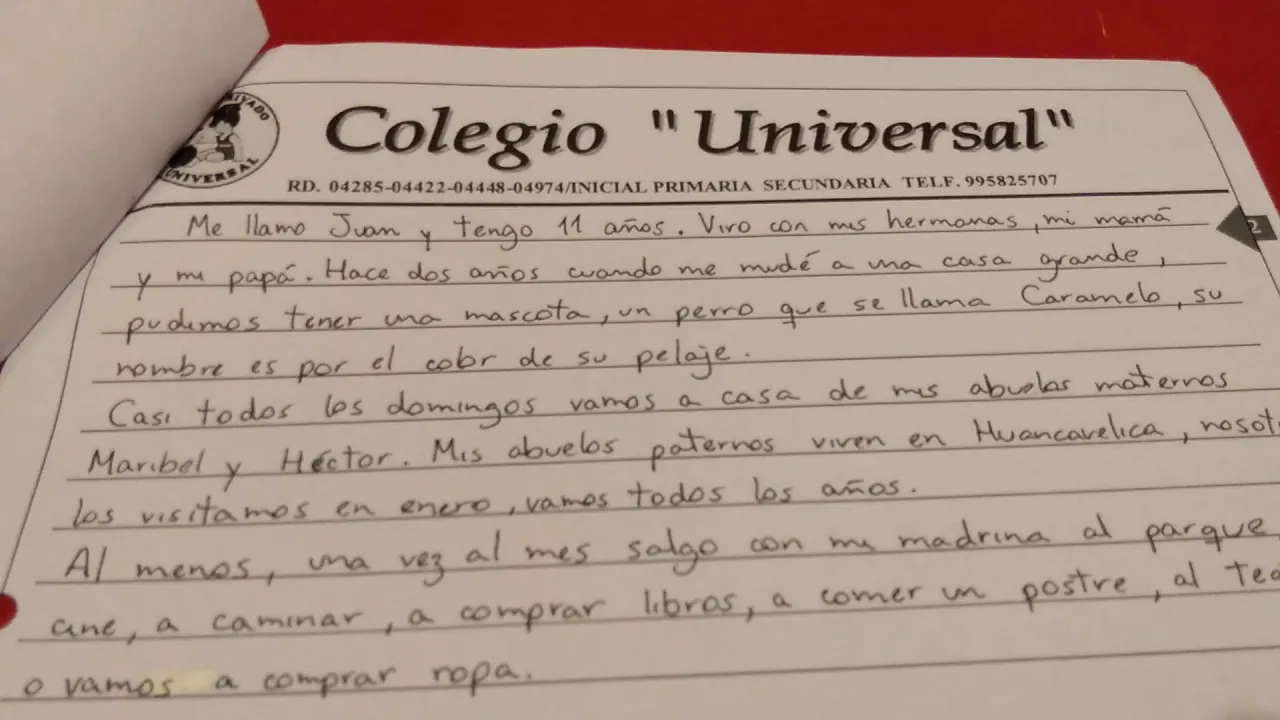 PRIVADO
UNIVERSAL
Colegio "Universal"
RD. 04285-04422-04448-04974/INICIAL PRIMARIA SECUNDARIA TELF. 995825707
2
Me llamo Juan y tengo 11 años. Vivo con mis hermanas, mi mamá
y mi papá. Hace dos años cuando me mudé a una casa grande,
pudimos tener una mascota, un perro que se llama Caramelo, su
nombre es por el color de su pelaje.
Casi todos los domingos vamos a casa de mis abuelos maternos
Maribel y Héctor. Mis abuelos paternos viven en Huancavelica, nosot
los visitamos en enero, vamos todos los años.
Al menos, una vez al mes salgo con mi madrina al parque,
cine, a caminar, a comprar libros, a comer un postre, al tea
o vamos a comprar ropa.